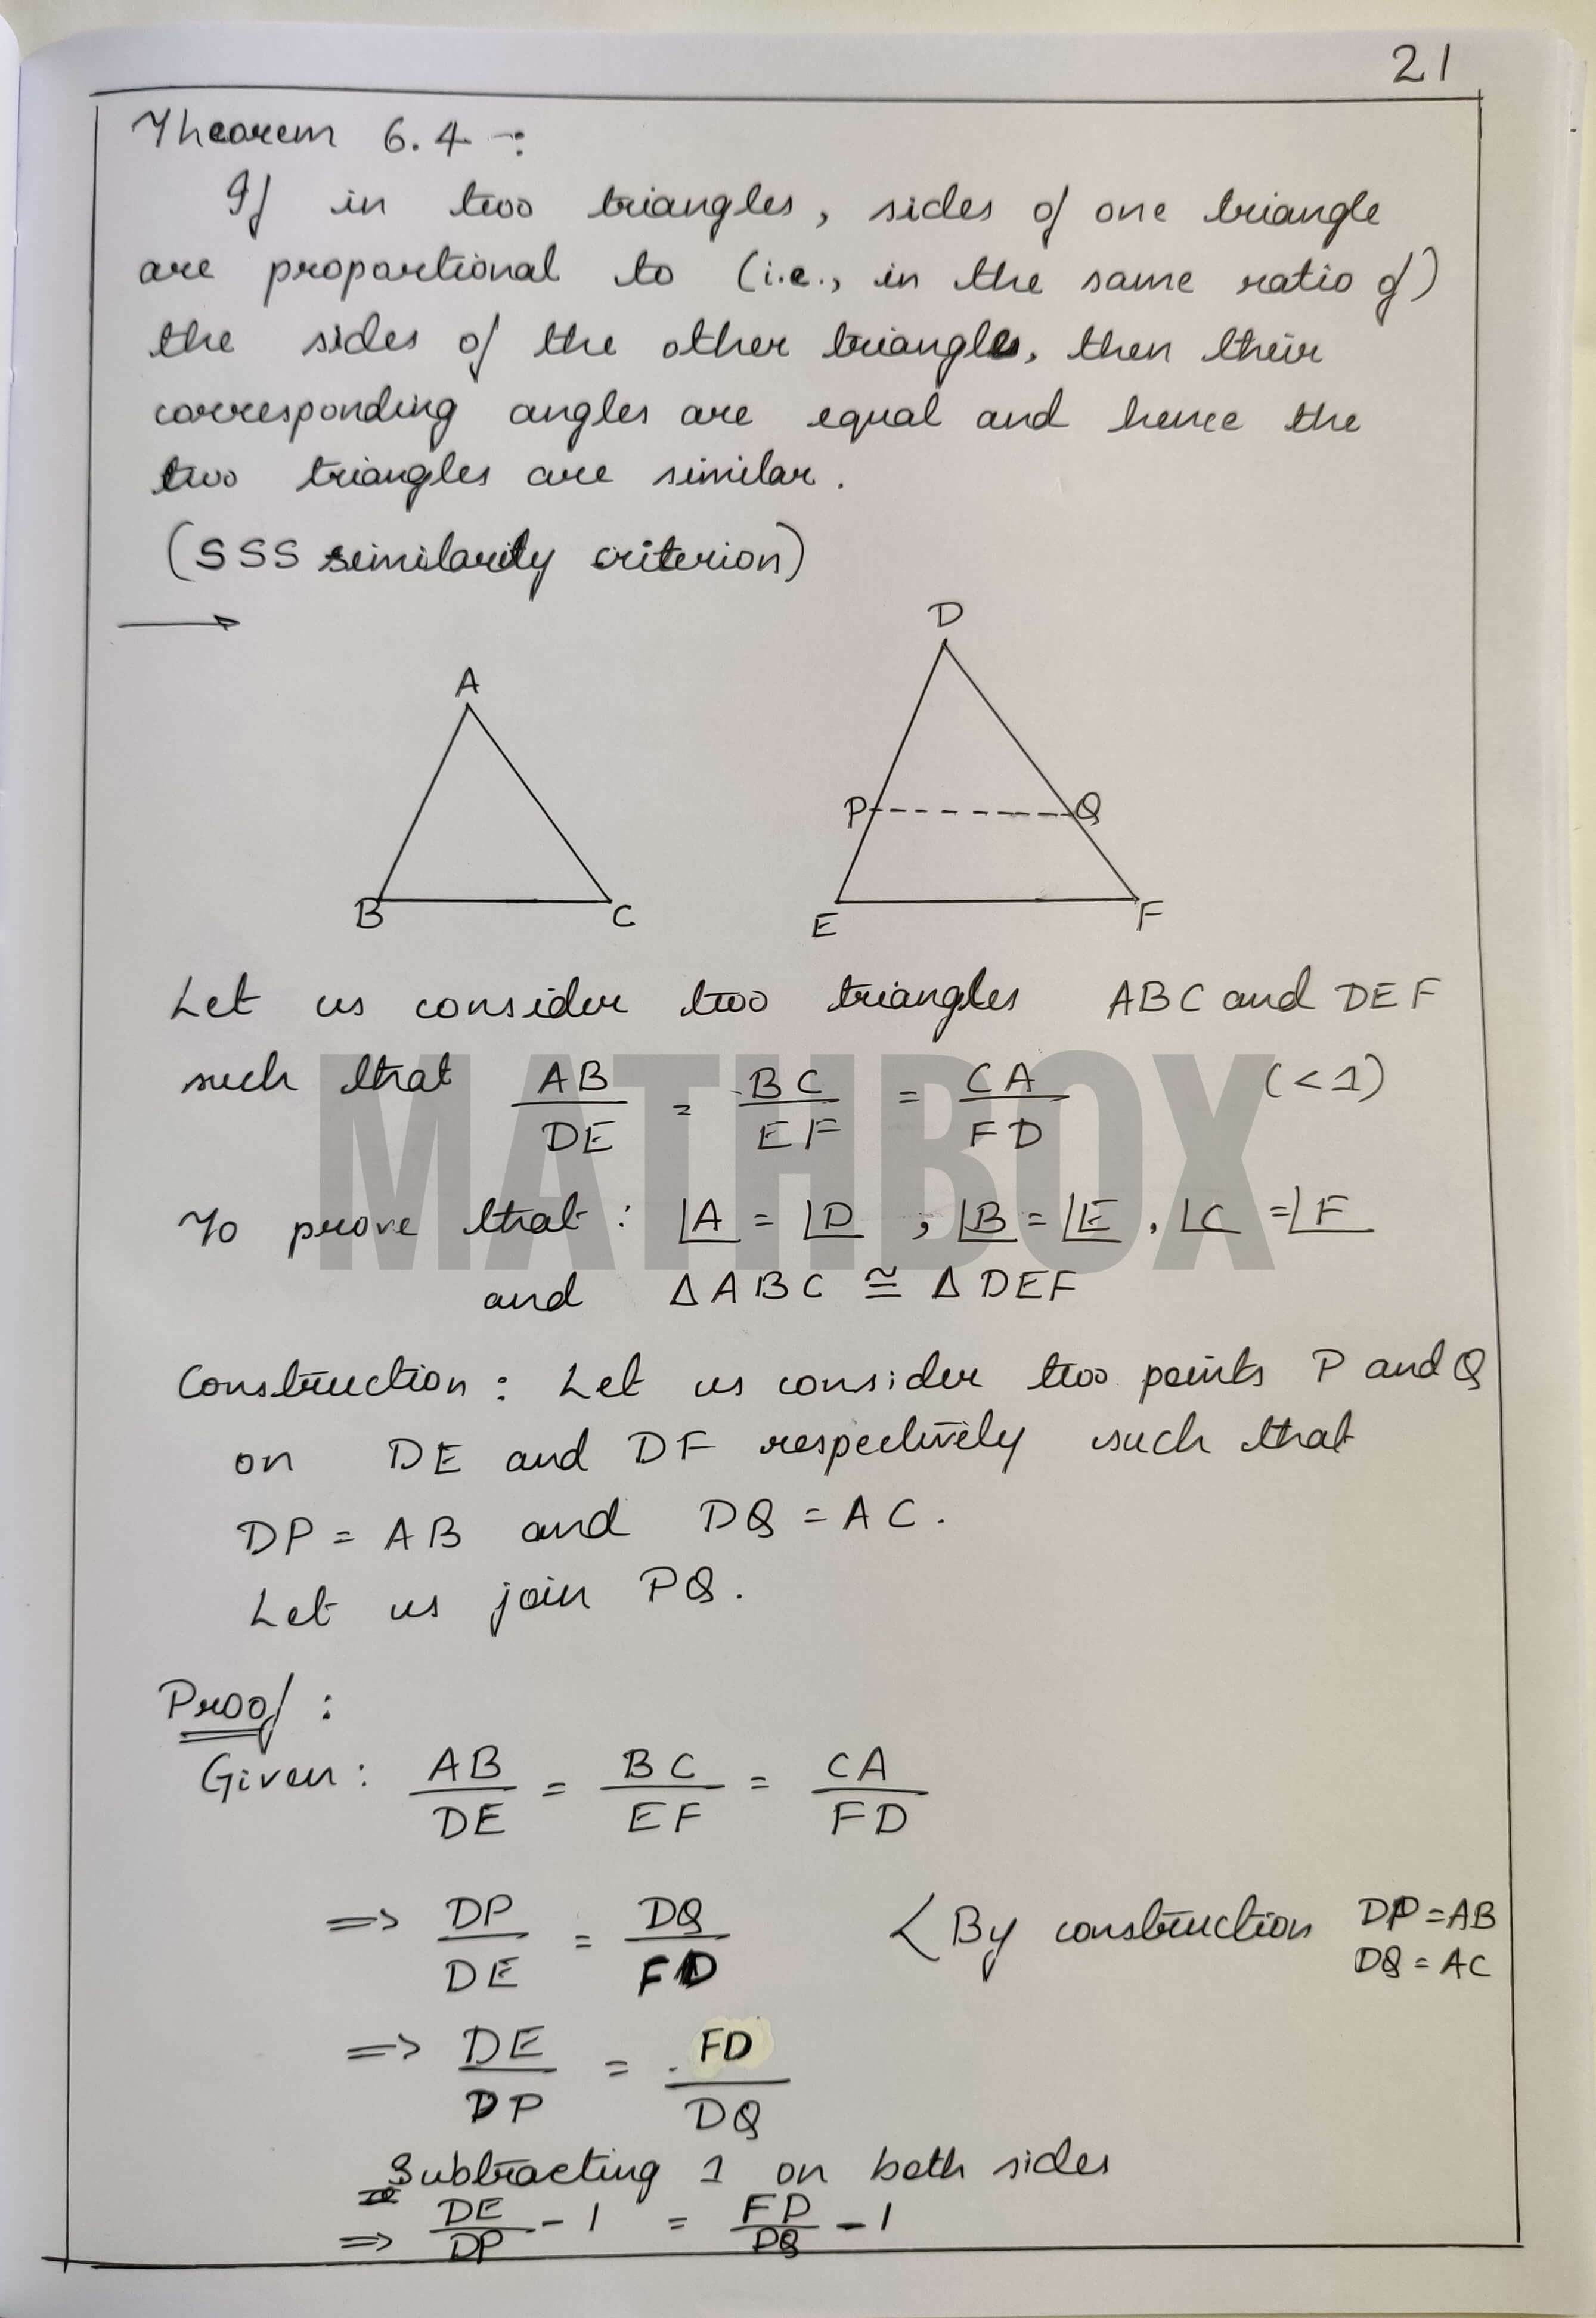 21
Theorem 6.4 -:
If in two triangles, sides of one triangle
are proportional to (i.e., in the same ratio of)
the sides of the other triangles, then their
corresponding angles are equal and hence the
two triangles are similar.
(SSS similarity criterion)
→
A
B
C
D
P
Q
E
F
Let us consider two triangles ABC and DEF
such that AB/DE = BC/EF = CA/FD (<1)
MATHBOX
To prove that : ∠A = ∠D , ∠B = ∠E , ∠C = ∠F
and ΔABC ≅ ΔDEF
Construction : Let us consider two points P and Q
on DE and DF respectively such that
DP = AB and DQ = AC.
Let us join PQ.
Proof :
Given : AB/DE = BC/EF = CA/FD
=> DP/DE = DQ/FD < By construction DP = AB
DQ = AC
=> DE/DP = FD/DQ
Subtracting 1 on both sides
=> DE/DP - 1 = FD/DQ - 1